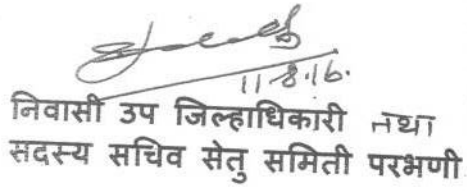 11.8.16.
निवासी उप जिल्हाधिकारी तथा
सदस्य सचिव सेतु समिती परभणी